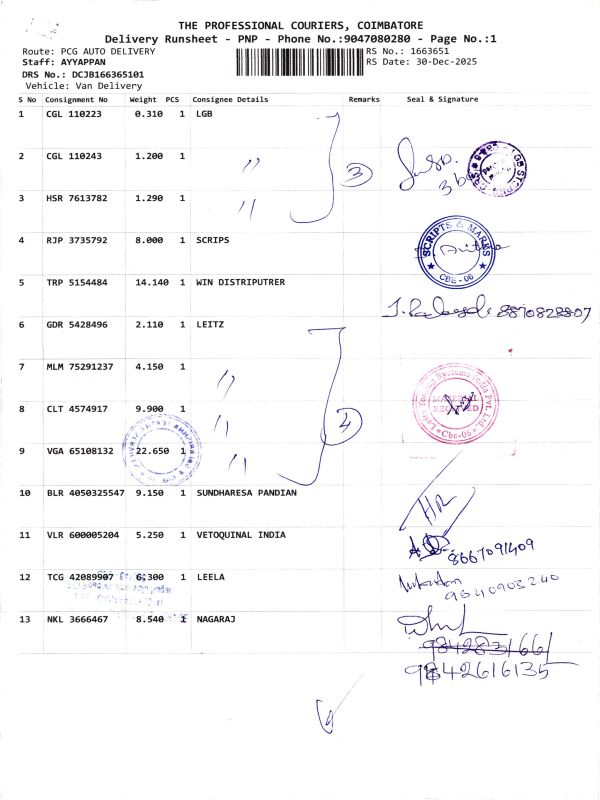 THE PROFESSIONAL COURIERS, COIMBATORE
Delivery Runsheet - PNP - Phone No.:9047080280 - Page No.:1
Route: PCG AUTO DELIVERY RS No.: 1663651
Staff: AYYAPPAN RS Date: 30-Dec-2025
DRS No.: DCJB166365101
Vehicle: Van Delivery
S No Consignment No Weight PCS Consignee Details Remarks Seal & Signature
1 CGL 110223 0.310 1 LGB
2 CGL 110243 1.200 1 "
3
3 HSR 7613782 1.290 1 "
4 RJP 3735792 8.000 1 SCRIPS
SCRIPTS & MARKS
CBE - 06
5 TRP 5154484 14.140 1 WIN DISTRIPUTRER
8870828807
6 GDR 5428496 2.110 1 LEITZ
7 MLM 75291237 4.150 1 "
8 CLT 4574917 9.900 1 "
4
MATERIAL
RECEIVED
Cbe-06
9 VGA 65108132 22.650 1 "
10 BLR 4050325547 9.150 1 SUNDHARESA PANDIAN
11 VLR 600005204 5.250 1 VETOQUINAL INDIA
8667091409
12 TCG 42089907 6.300 1 LEELA
9840903240
13 NKL 3666467 8.540 1 NAGARAJ
9842616135